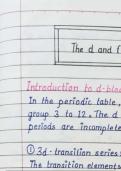 The d and f
Introduction to d-bloc
In the periodic table,
group 3 to 12. The d
periods are incomplete
① 3d-transition series:
The transition elements